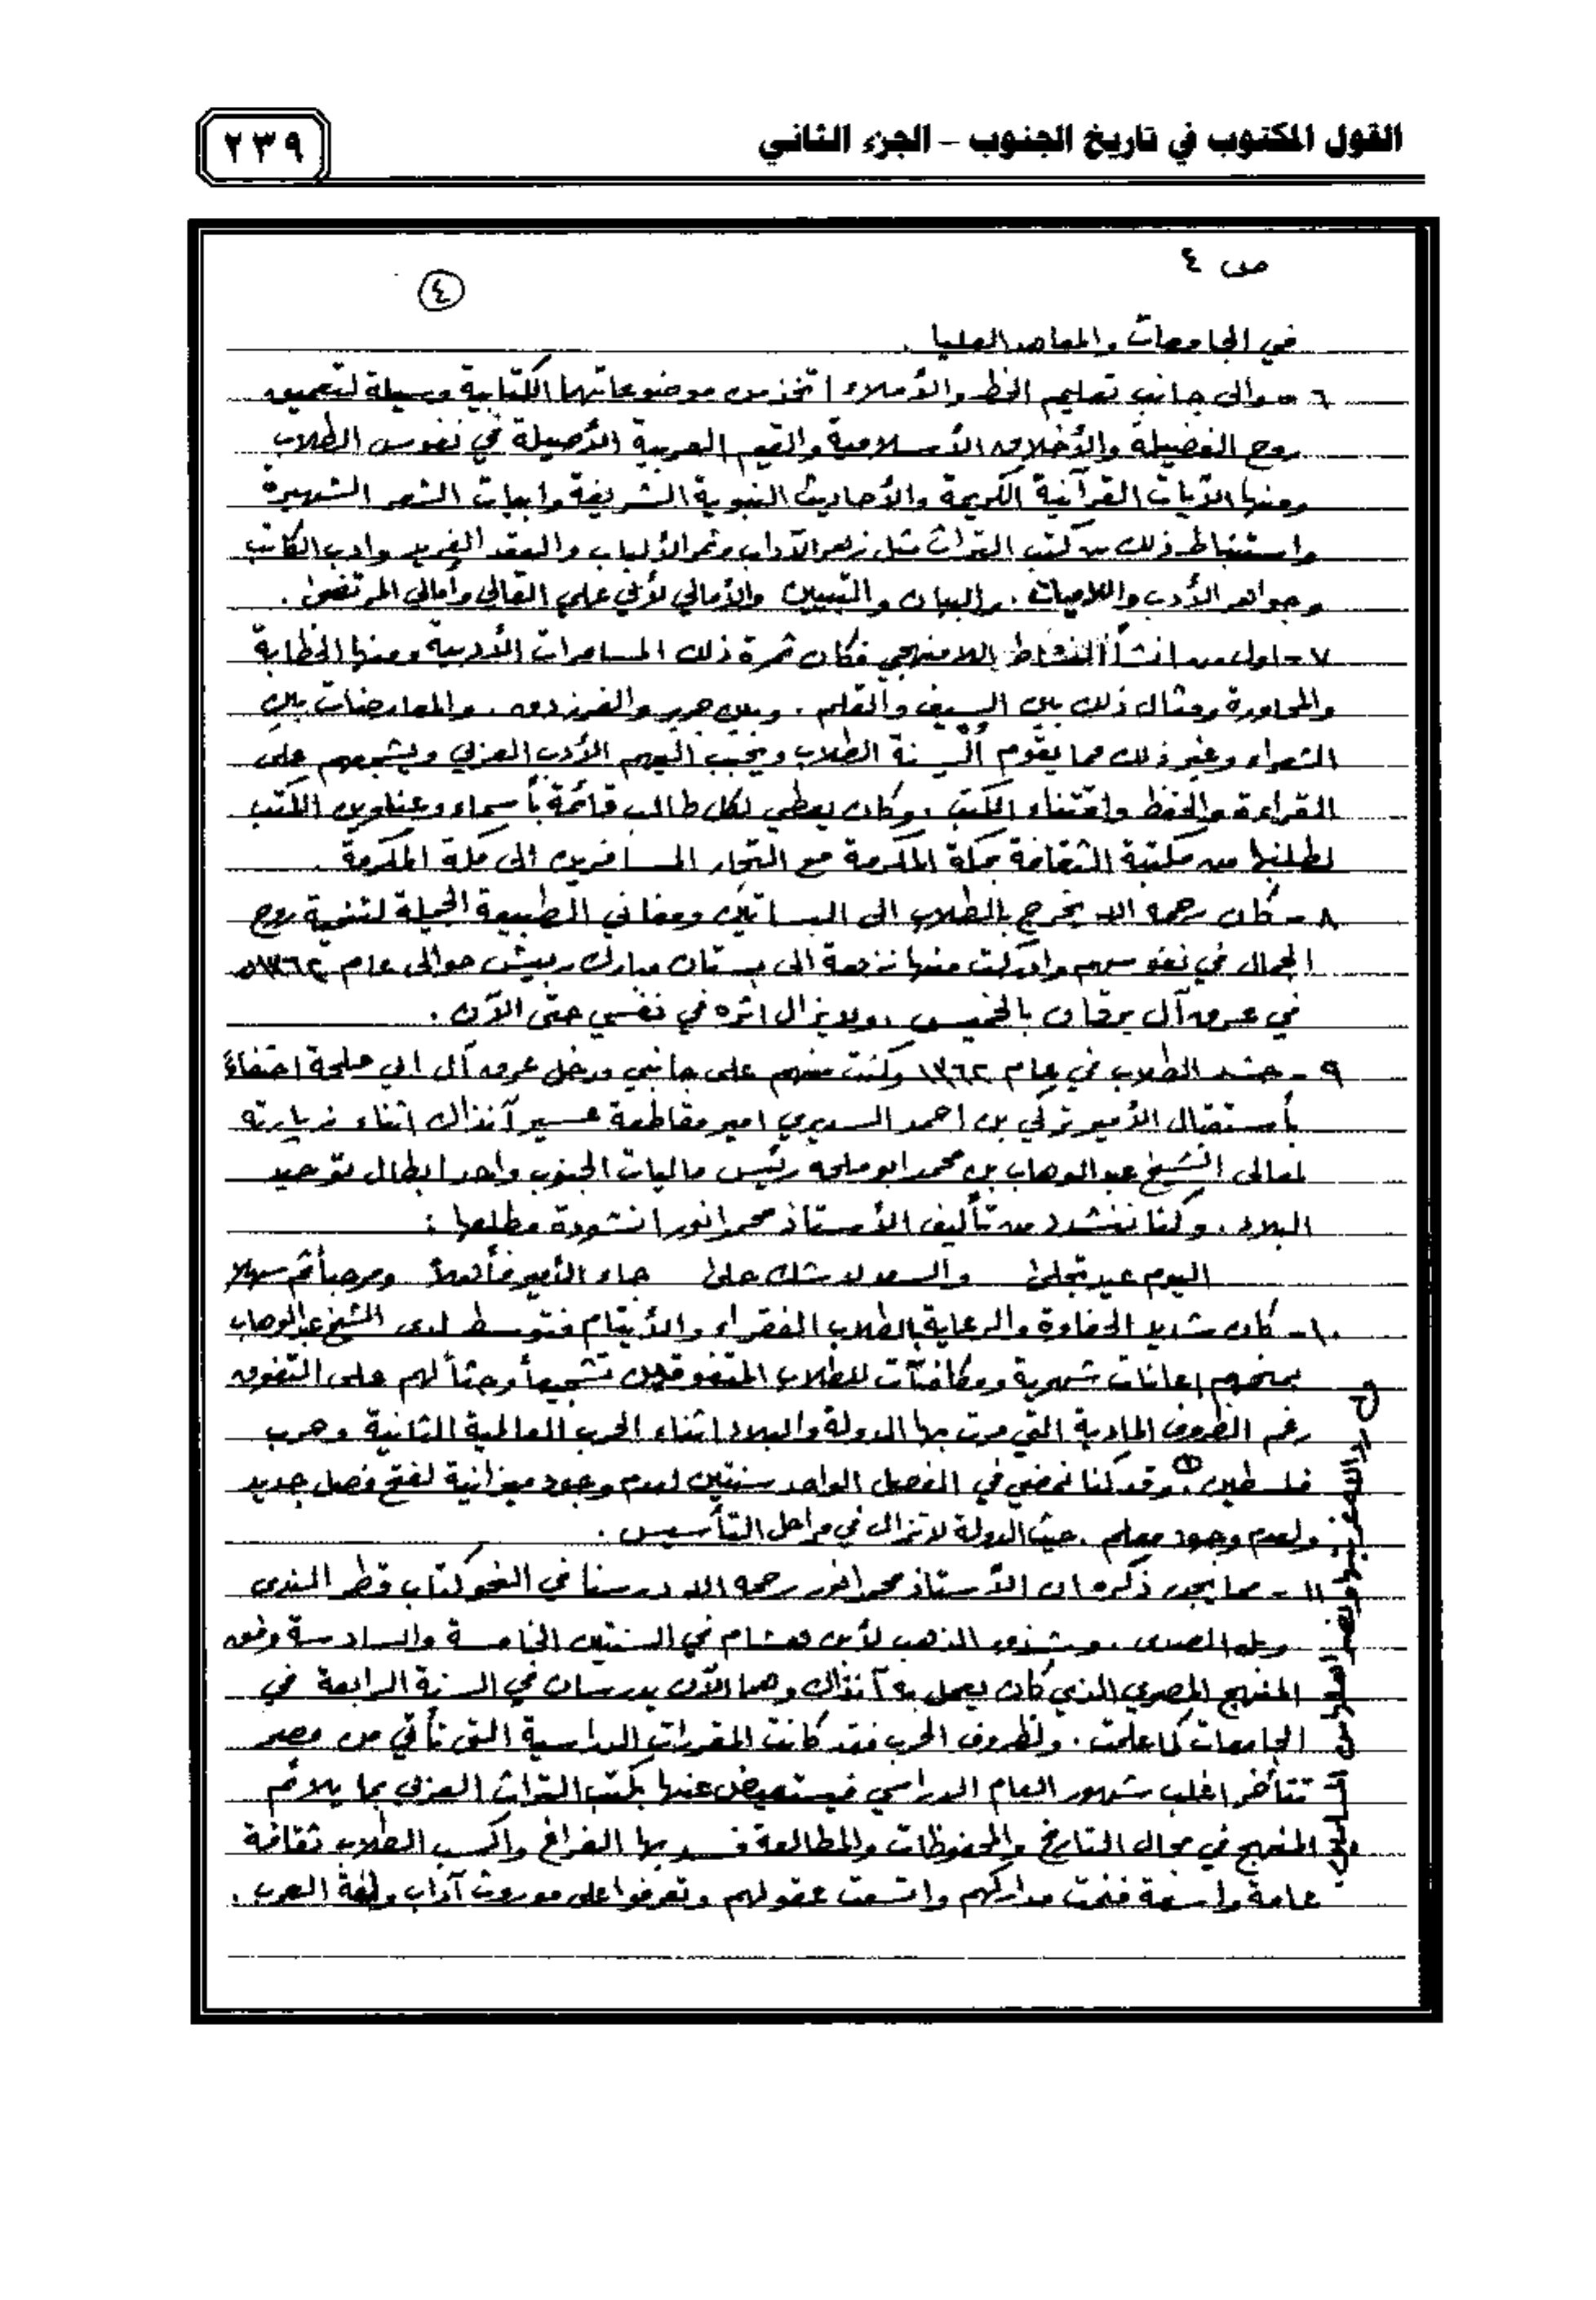 القول المكتوب في تاريخ الجنوب – الجزء الثاني
٢٣٩
ص ٤
٤
في الجامعات والمعاهد العليا .
٦ - والى جانب تعليم الخط والأملاء اتخذ من موضوعاتهما الكتابية وسيلة لتعميق
روح الفضيلة والأخلاق الأسلامية والقيم العربية الأصيلة في نفوس الطلاب
ومنها الآيات القرآنية الكريمة والأحاديث النبوية الشريفة وابيات الشعر الشهيرة
واستنباط ذلك من كتب التراث مثل زهر الآداب وثمر الألباب والعقد الفريد وادب الكاتب
وجواهر الأدب واللاميات . والبيان والتبيين والأمالي لأبي علي القالي وأمالي المرتضى .
٧ - اول من انشأ النشاط اللا منهجي فكان ثمرة ذلك المسامرات الأدبية ومنها الخطابة
والمحاورة ومثال ذلك بين السيف والقلم . وبين جرير والفرزدق . والمعارضات بين
الشعراء وغير ذلك مما يقوم ألسنة الطلاب ويحبب اليهم الأدب العربي ويشجعهم على
القراءة والحفظ واقتناء الكتب . وكان يعطي لكل طالب قائمة بأسماء وعناوين الكتب
لطلبها من مكتبة الثقافة بمكة المكرمة مع التجار المسافرين الى مكة المكرمة .
٨ - كان رحمه الله يخرج بالطلاب الى البساتين ومغاني الطبيعة الجميلة لتنمية روح
الجمال في نفوسهم وادركت منها نزهة الى بستان مبارك ربيش حوالى عام ١٣٦٢هـ
في عرق آل يرقان بالخميس . ولا يزال اثره في نفسي حتى الآن .
٩ - حشد الطلاب في عام ١٣٦٢ وكنت منهم على جانبي مدخل عرق آل ابي ملحة احتفاءً
بأستقبال الأمير تركي بن احمد السديري امير مقاطعة عسير آنذاك اثناء زيارته
لمعالى الشيخ عبدالوهاب بن محمد ابو ملحه رئيس ماليات الجنوب واحد ابطال توحيد
البلاد . وكنا ننشد من تأليف الأستاذ محمد انور انشودة مطلعها :
اليوم عيد تجلىٰ والسعد لا شك حلىٰ جاء الأمير فأهلاً ومرحباً ثم سهلا
١٠ - كان شديد الحفاوة والرعاية بالطلاب الفقراء والأيتام فتوسط لدى الشيخ عبدالوهاب
بمنحهم إعانات شهرية ومكافئآت للطلاب المتفوقين تشجيعاً وحثاً لهم على التفوق
رغم الظروف المادية التي مرت بها الدولة والبلاد اثناء الحرب العالمية الثانية وحرب
فلسطين . (١) وقد كنا نمضي في الفصل الواحد سنتين لعدم وجود ميزانية لفتح فصل جديد
ولعدم وجود معلم . حيث الدولة لا تزال في مراحل التأسيس .
١١ - مما يجدر ذكره ان الأستاذ محمد انور رحمه الله درسنا في النحو كتاب قطر الندى
وبل الصدى . وشذور الذهب لأبن هشام في السنتين الخامسة والسادسة وفق
المنهج المصري الذي كان يعمل به آنذاك وهما الآن يدرسان في السنة الرابعة في
الجامعات كما علمت . ولظروف الحرب فقد كانت المقررات الدراسية التي تأتي من مصر
تتأخر اغلب شهور العام الدراسي فيستعيض عنها بكتب التراث العربي بما يلائم
المنهج في مجال التاريخ والمحفوظات والمطالعة فسد بها الفراغ واكسب الطلاب ثقافة
عامة واسعة فنمت مداركهم واتسعت عقولهم وتعرفوا على موروث آداب ولغة العرب .